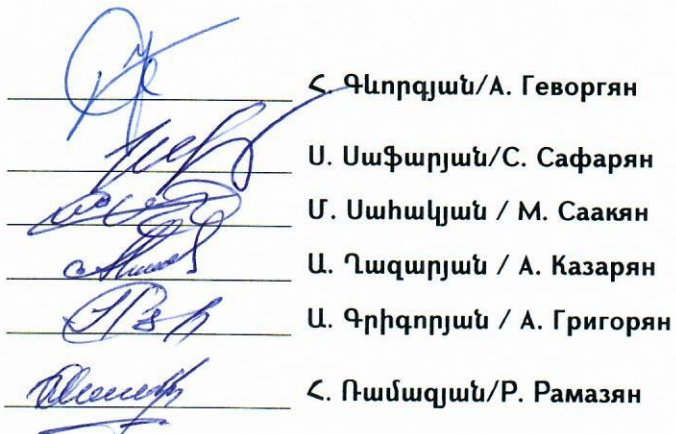 Հ. Գևորգյան/А. Геворгян
Ս. Սաֆարյան/С. Сафарян
Մ. Սահակյան / М. Саакян
Ա. Ղազարյան / А. Казарян
Ա. Գրիգորյան / А. Григорян
Հ. Ռամազյան/Р. Рамазян